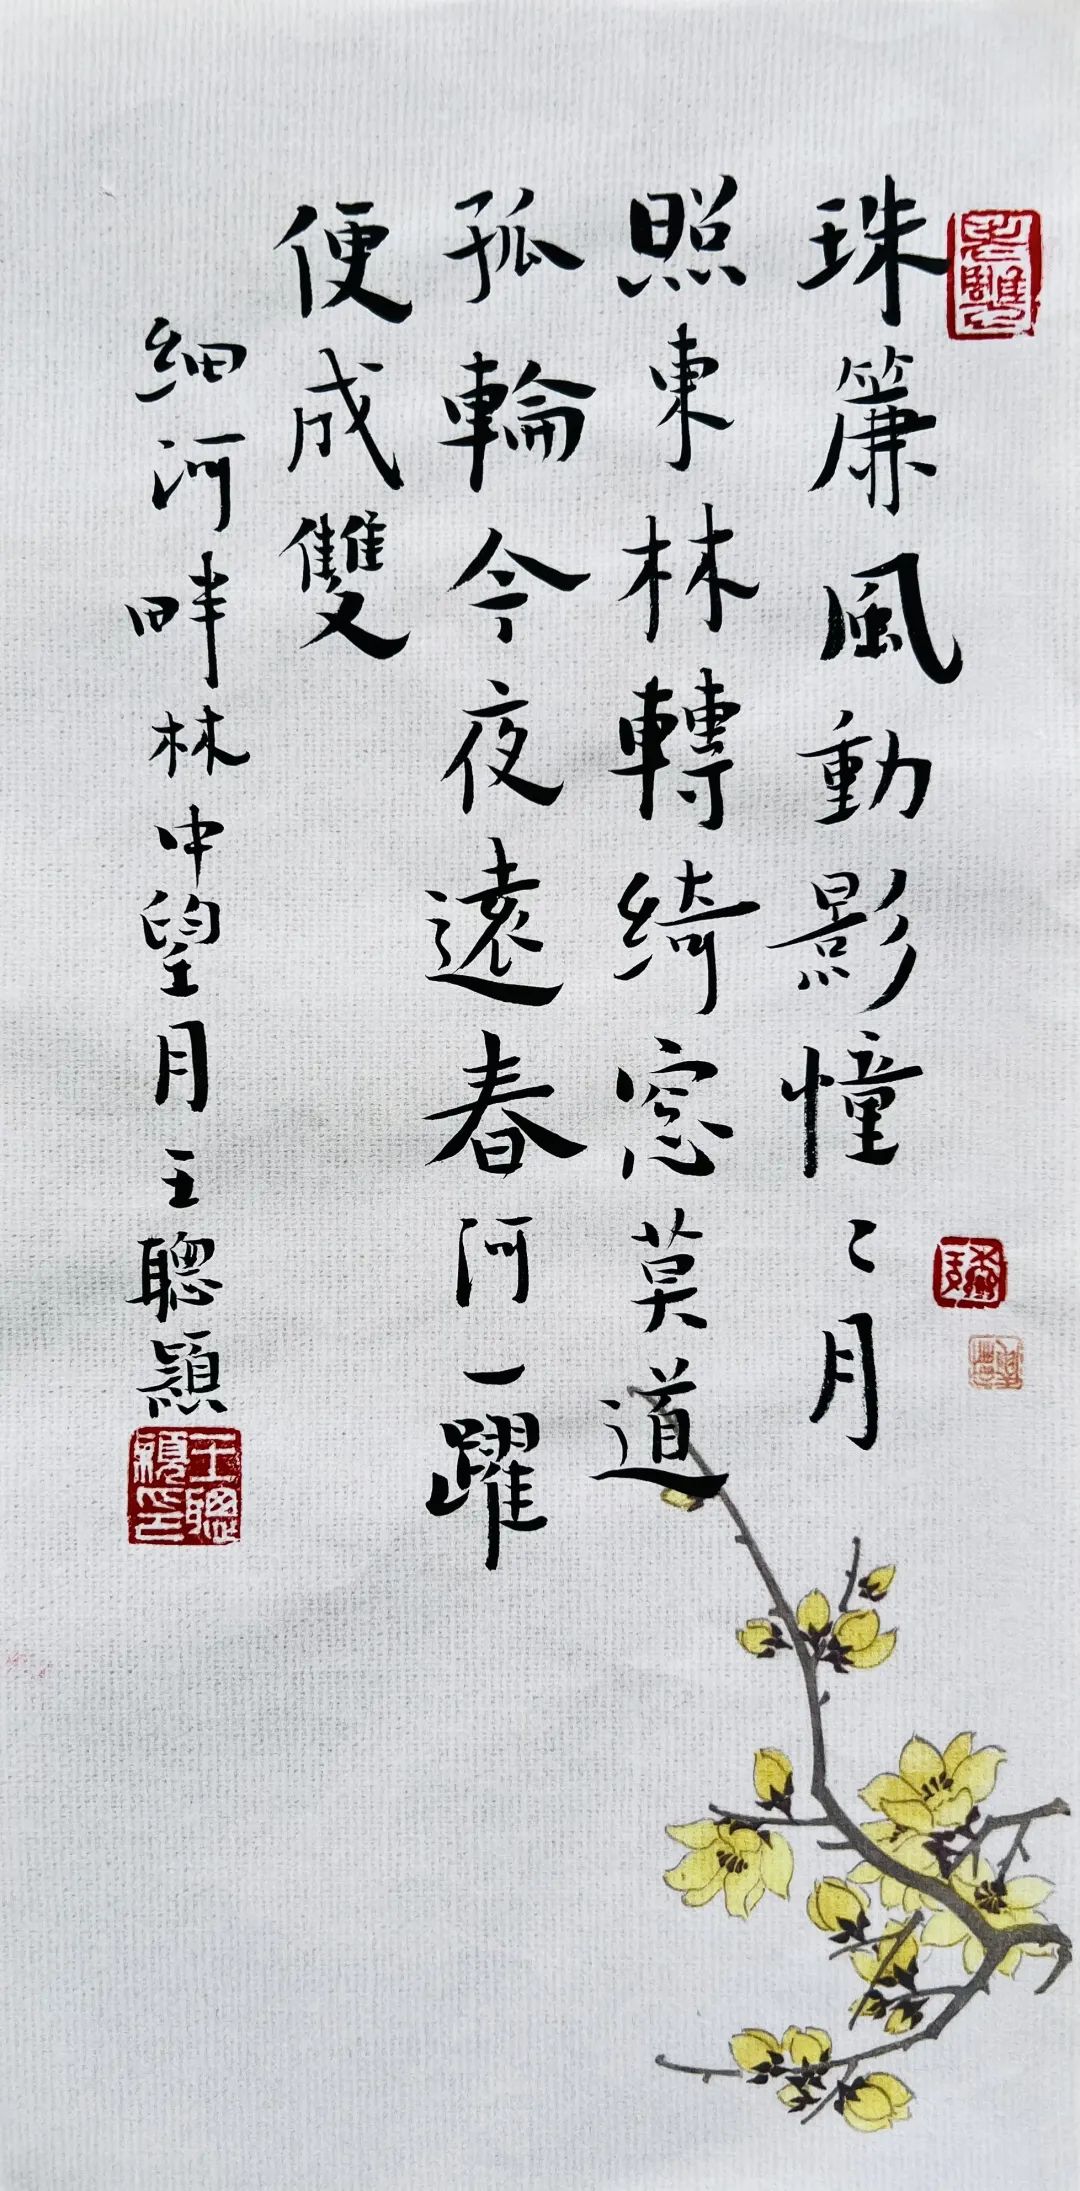 珠簾風動影憧〻月
照東林轉綺窓莫道
孤輪今夜遠春河一躍
便成雙
細河畔林中望月王聰穎
王聰
穎印